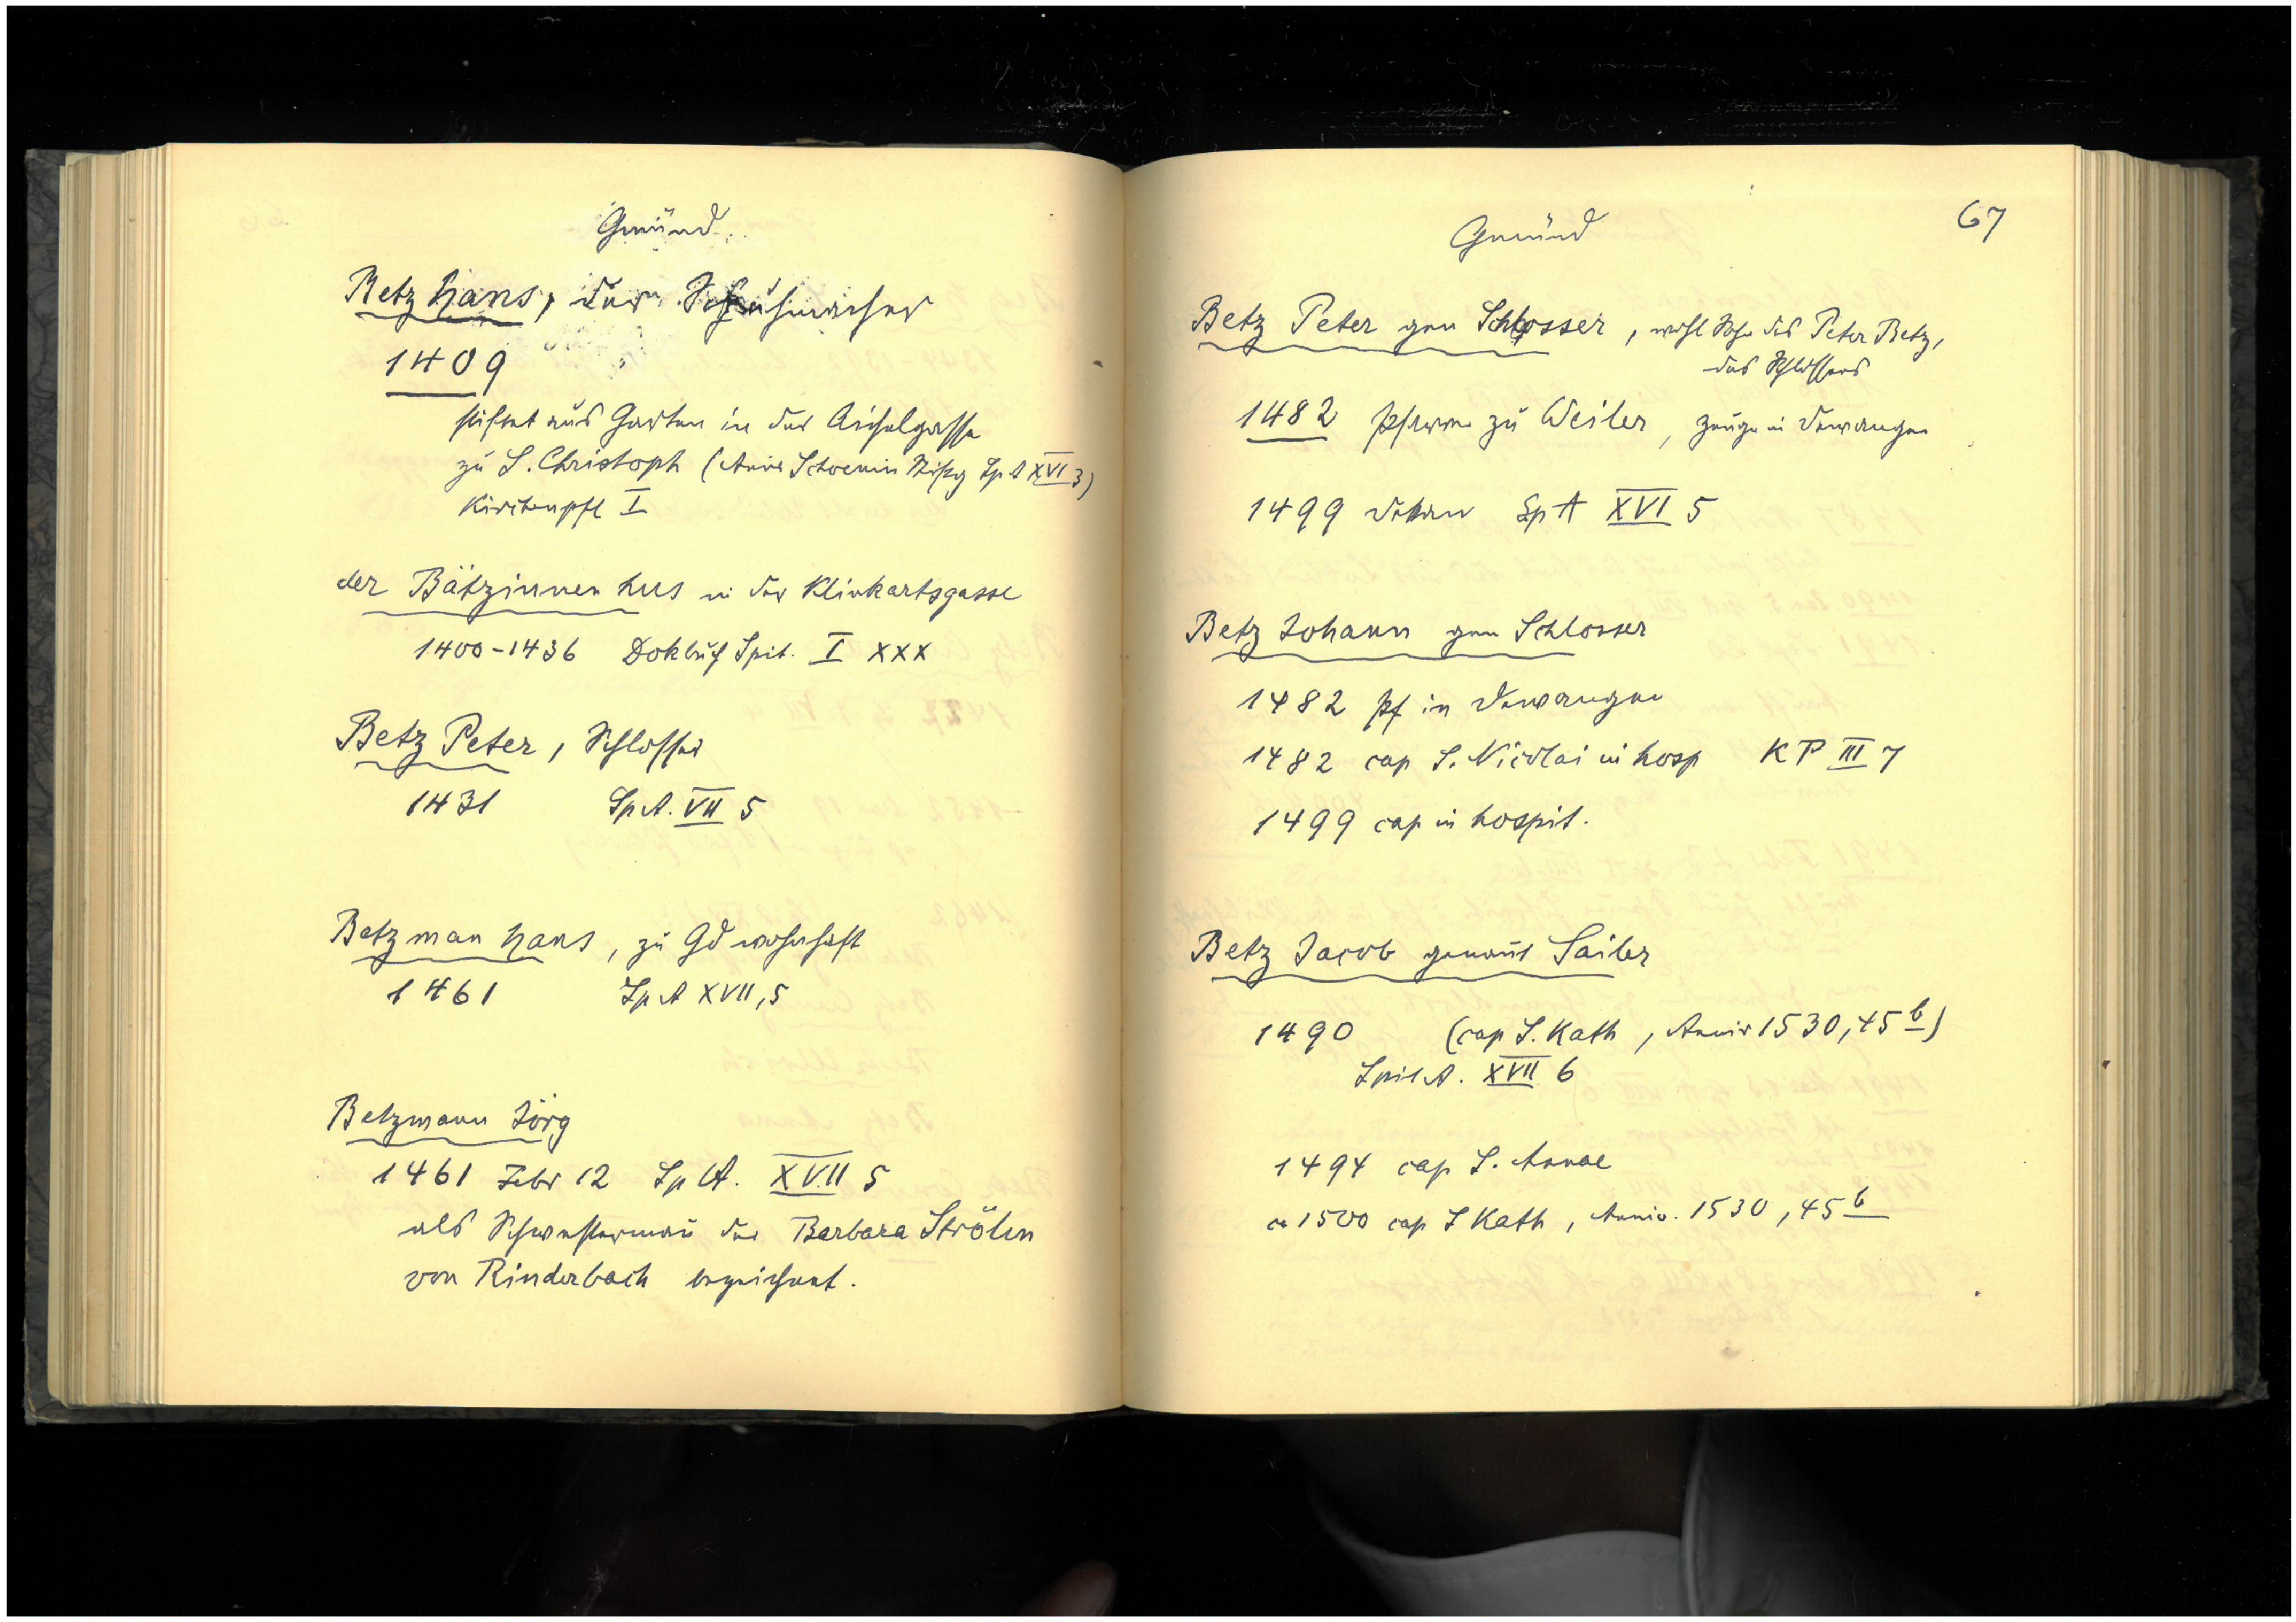 Gmünd
Betz Hans, der Schuhmacher
1409
stiftet aus Garten in der Aichelgasse
zu S. Christoph (Anna Schoenin Stiftg Sp A XVI 3)
Kirchenpfl I
der Bätzinnen hus in der Klinkartsgasse
1400-1436 Dokbuch Spit. I XXX
Betz Peter, Schlosser
1431 Sp A. VII 5
Betzman Hans, zu Gd wohnhaft
1461 Sp A XVII, 5
Betzmann Jörg
1461 Febr 12 Sp A. XVII 5
als Schwestermañ der Barbara Strölin
von Rinderbach bezeichnet.
Gmünd
67
Betz Peter gen Schlosser, wohl Sohn des Peter Betz,
des Schlossers
1482 Pfarrer zu Weiler, Zeuge in Dewangen
1499 Dekan Sp A XVI 5
Betz Johann gen Schlosser
1482 Pf in Dewangen
1482 cap S. Nicolai in hosp KP III 7
1499 cap in hospit.
Betz Jacob genañt Sailer
1490 (cap S. Kath, Anniv 1530, 45 b)
Spit A. XVII 6
1494 cap S. Annae
ca 1500 cap S Kath, Anniv. 1530, 45 b